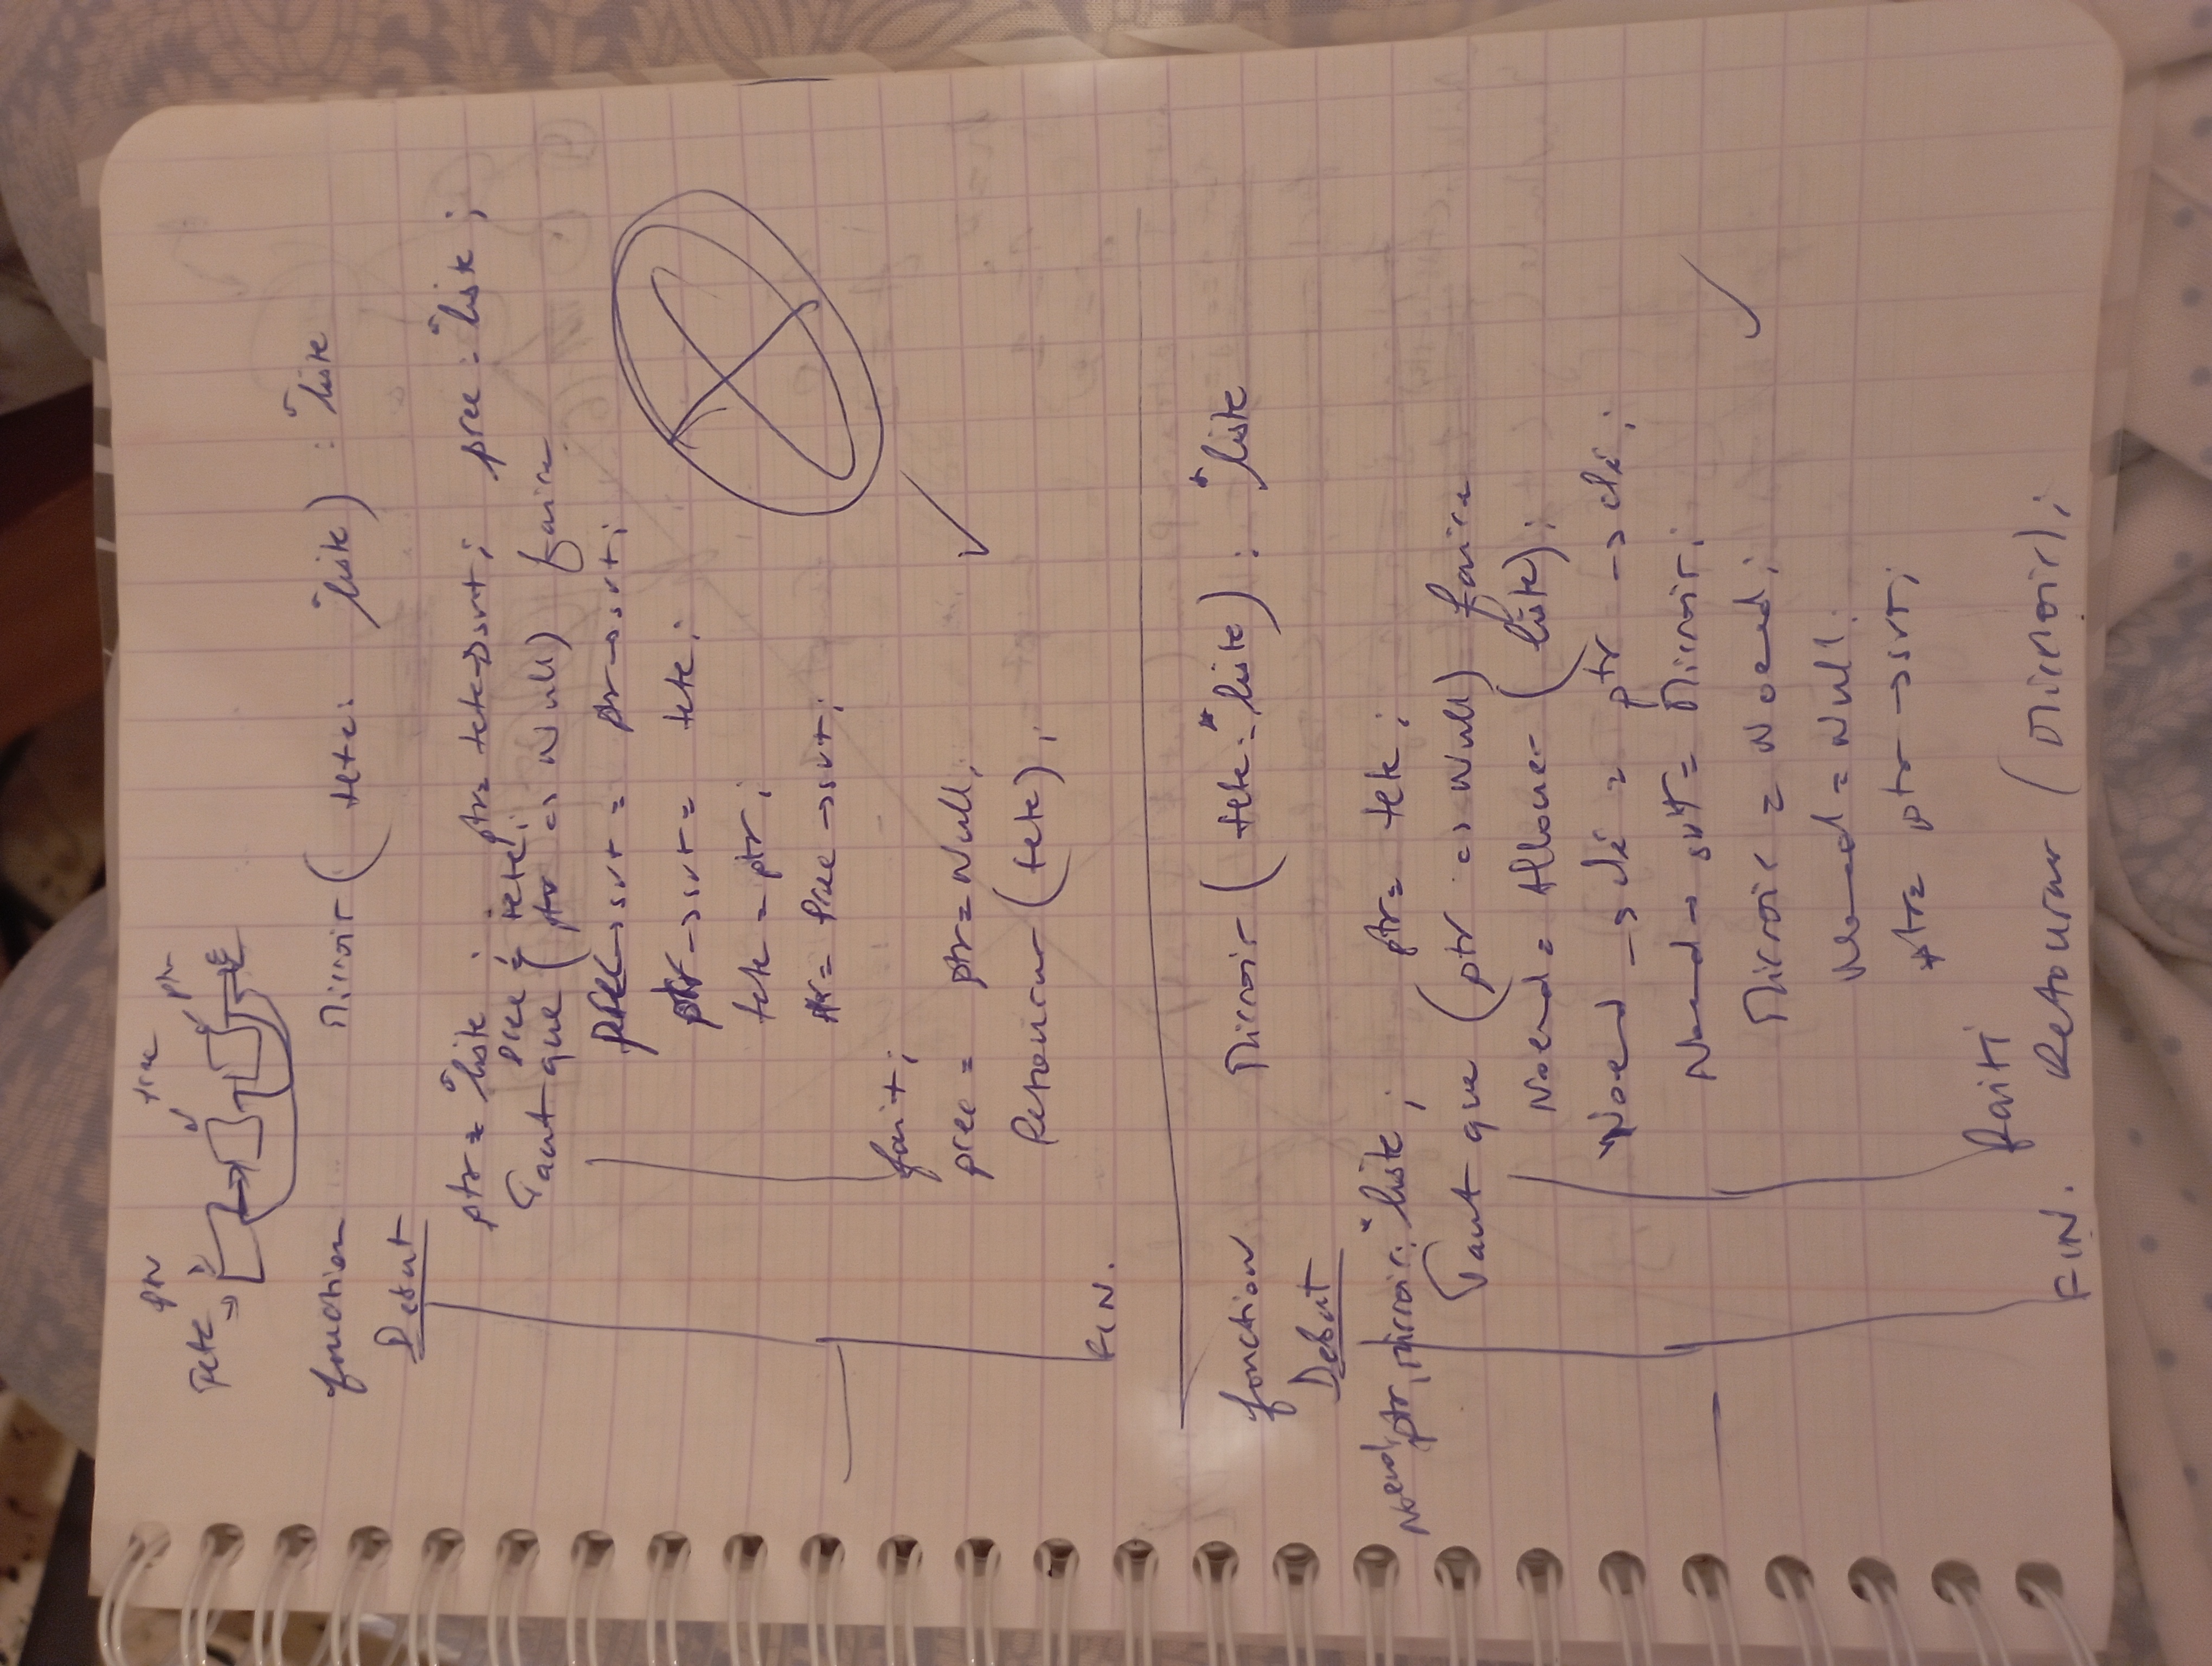 ptr tete ptr
Tete →
fonction Miroir ( tete: *liste) : *liste
Debut
ptr= *liste ; ptr= tete→svt ; prec : *liste ;
prec = tete;
Tant que ( ptr <> Null) faire
prec→svt = ptr→svt ;
ptr→svt = tete ;
tete = ptr ;
ptr= prec→svt ;
fait ;
prec = ptr= Null ;
Retourner (tete) ;
FIN.
fonction Miroir ( tete: *liste) : *liste
Debut
Noeud, ptr, miroir: *liste ; ptr= tete ;
Tant que (ptr <> Null) faire
Noeud = Allouer (liste) ;
Noeud → clé = ptr → clé ;
Noeud → svt = Miroir ;
Miroir = Noeud ;
Noeud = Null ;
ptr= ptr →svt ;
Fait
Retourner (Miroir) ;
FIN.